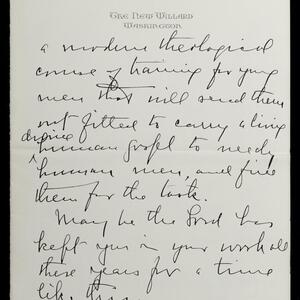 The New Willard
Washington
a modern theological
course of training for young
men that will send them
out fitted to carry a living
divine
human gospel to needy
human men, and fire
them for the task.
May be the Lord has
kept you in your work all
these years for a time
like this